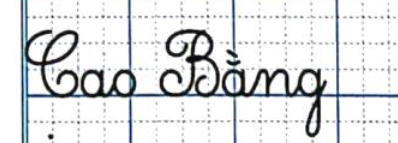 Cao Bằng